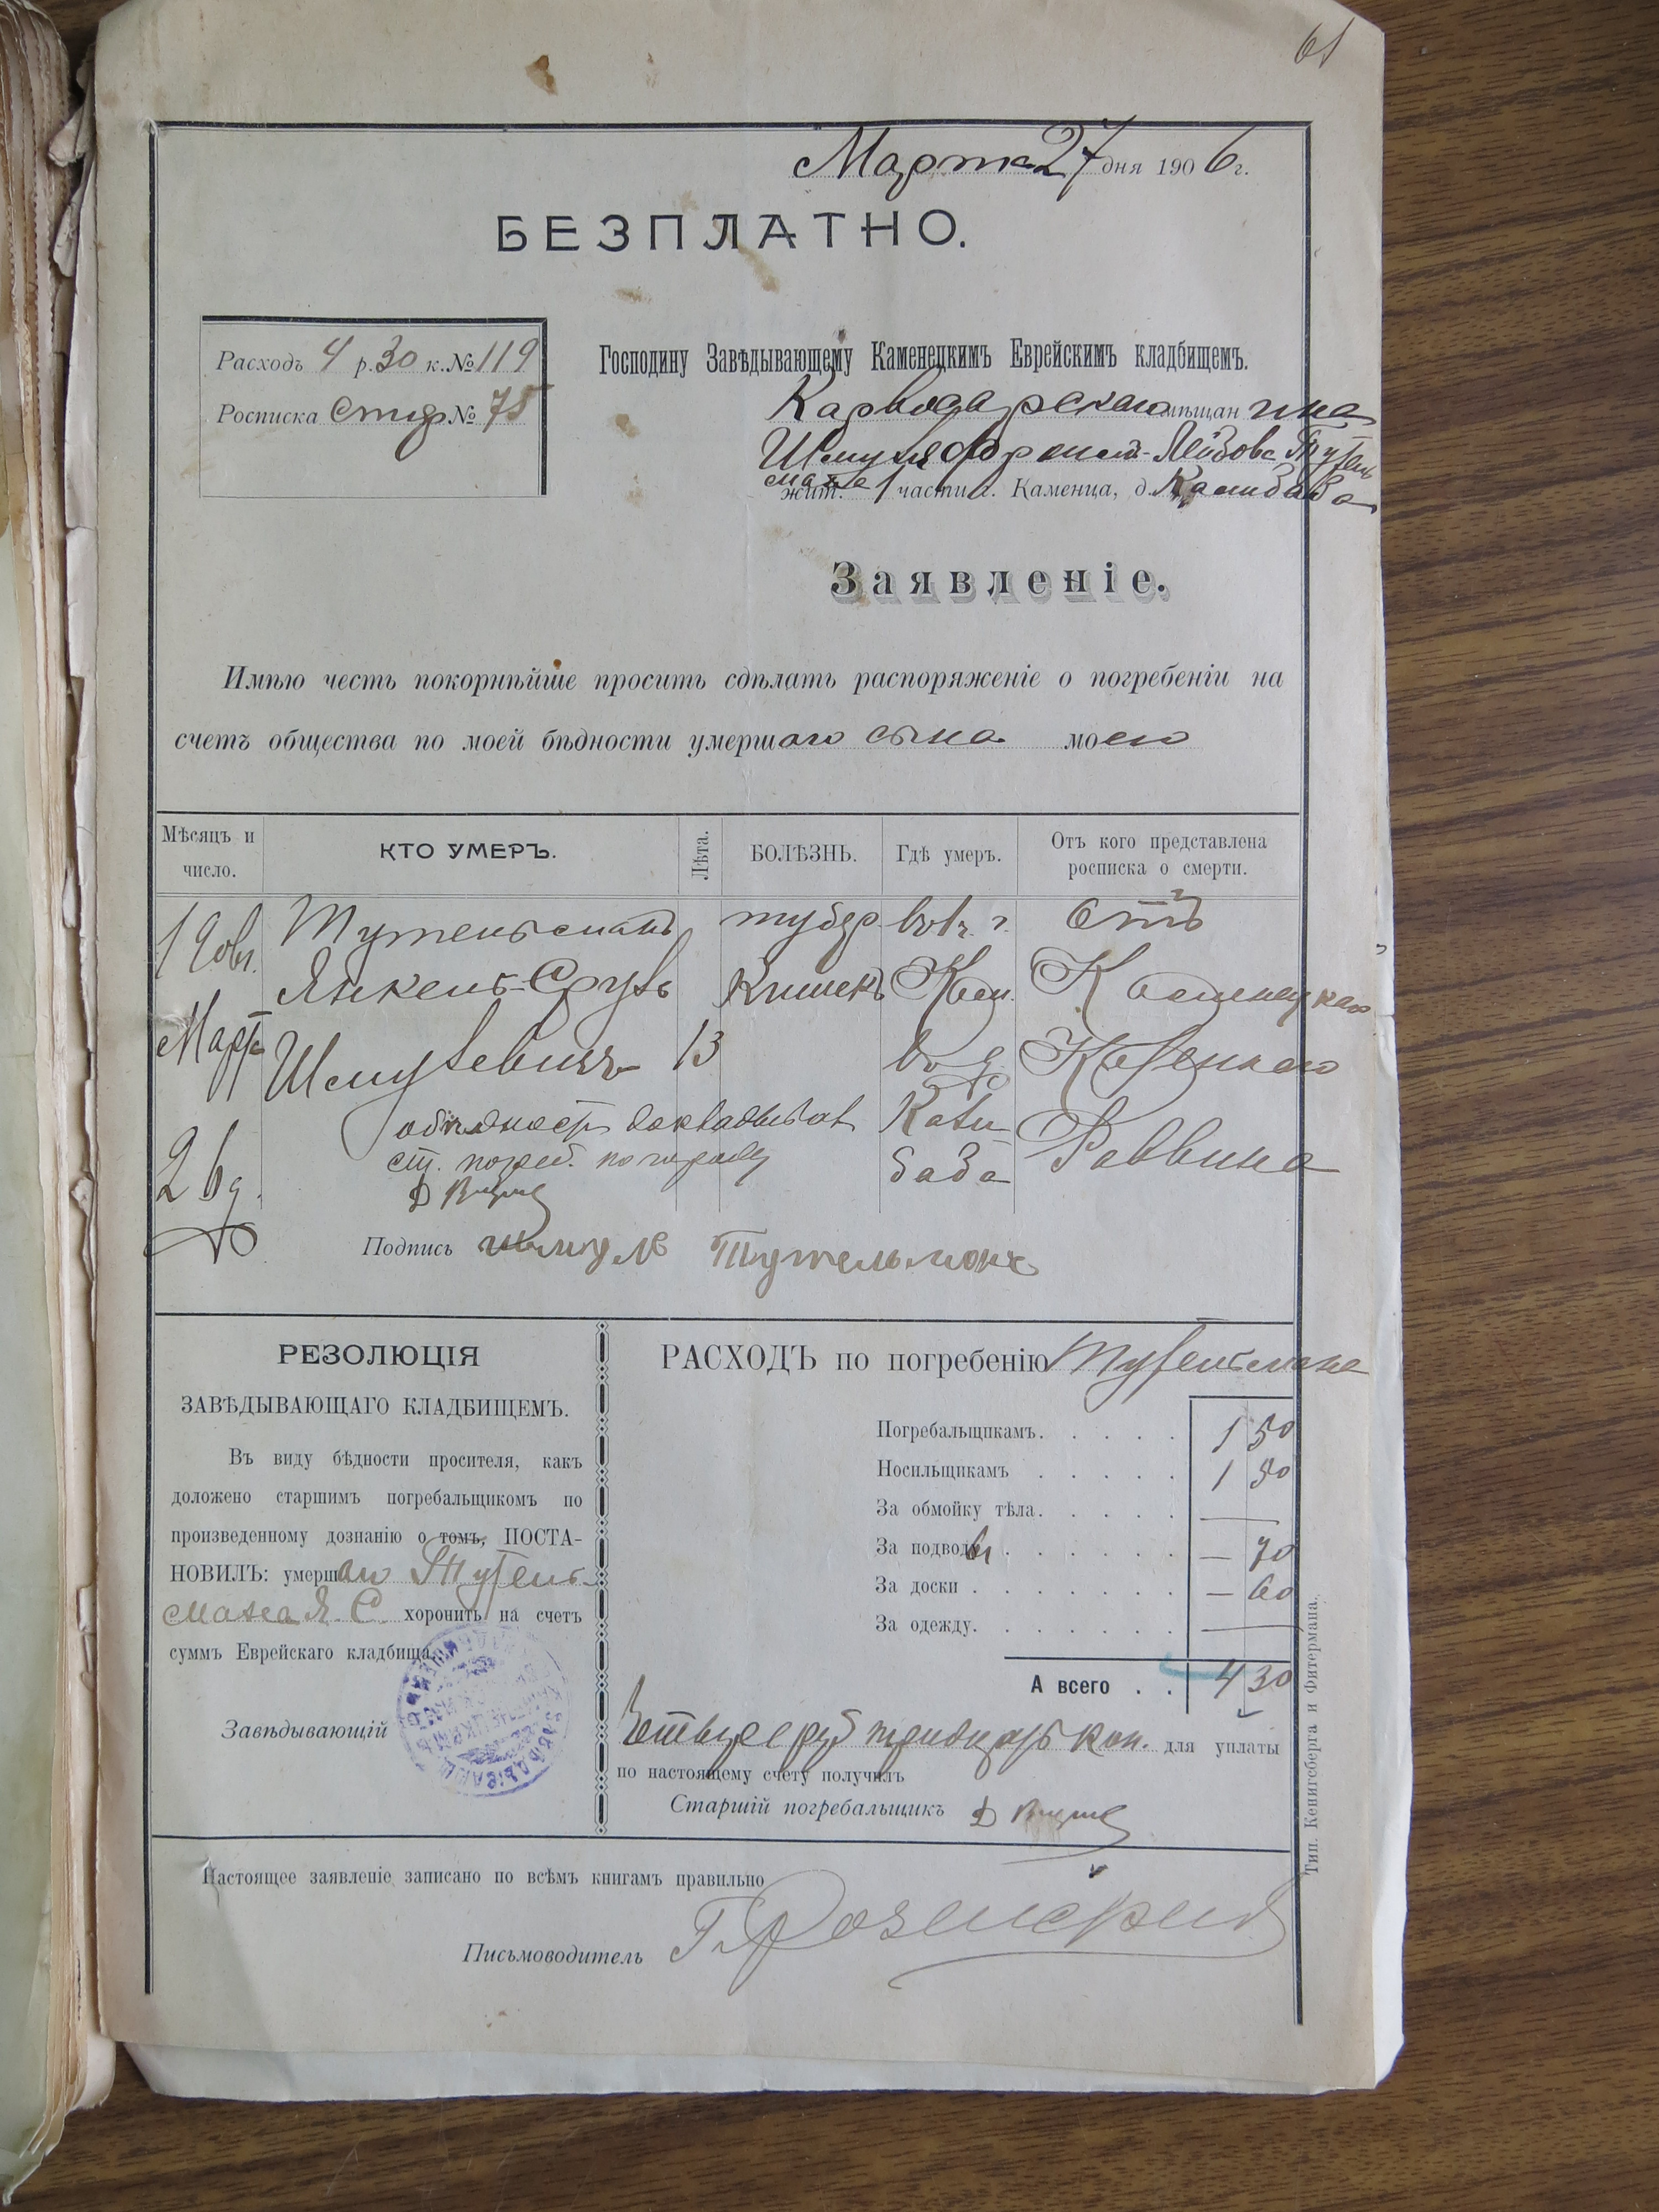 61
Марта 27 дня 1906 г.
БЕЗПЛАТНО.
Расходъ 4 р. 30 к. № 119
Росписка № 75
Господину Завѣдывающему Каменецкимъ Еврейскимъ кладбищемъ.
мѣщанина
Шмуля Лейбова Тутель
мана
жит. 1 части г. Каменца, д.
Заявленіе.
Имѣю честь покорнѣйше просить сдѣлать распоряженіе о погребеніи на
счетъ общества по моей бѣдности умершаго сына моего
Мѣсяцъ и число.
КТО УМЕРЪ.
Лѣта.
БОЛѢЗНЬ.
Гдѣ умеръ.
Отъ кого представлена росписка о смерти.
Тутельманъ тубер. въ г. Отъ
Янкель-Сруль Кишекъ Кам. Каменецкаго
Марта Шмулевичъ 13 въ д. Казеннаго
26 Раввина
Подпись Шмуль Тутельманъ
РЕЗОЛЮЦІЯ
ЗАВѢДЫВАЮЩАГО КЛАДБИЩЕМЪ.
Въ виду бѣдности просителя, какъ
доложено старшимъ погребальщикомъ по
произведенному дознанію о томъ, ПОСТА-
НОВИЛЪ: умершаго Тутель-
мана Я. С. хоронить на счетъ
суммъ Еврейскаго кладбища.
Завѣдывающій
РАСХОДЪ по погребенію Тутельмана
Погребальщикамъ. . . . . 1 50
Носильщикамъ . . . . . 1 50
За обмойку тѣла. . . . . —
За подводы . . . . . . — 70
За доски . . . . . . . — 60
За одежду. . . . . . . —
А всего . . 4 30
Четыре руб тридцать коп. для уплаты
по настоящему счету получилъ
Старшій погребальщикъ
Настоящее заявленіе записано по всѣмъ книгамъ правильно
Письмоводитель
Тип. Кенигсберга и Фитермана.